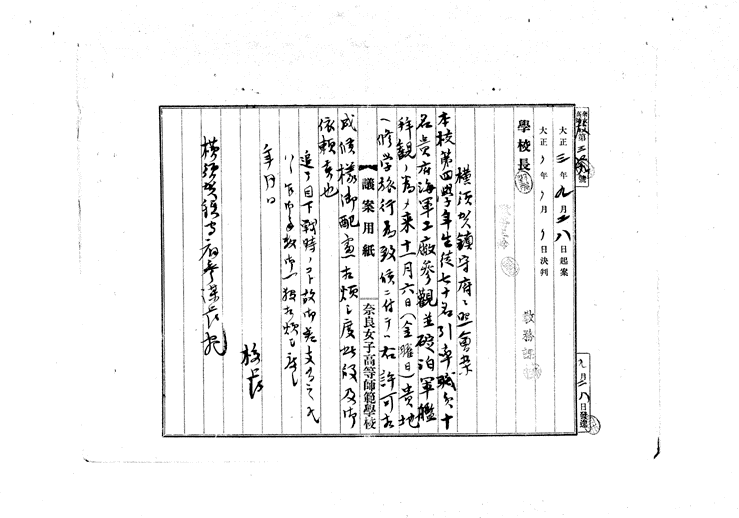 大正三年九月二八日起案
大正 年 月 日決判
學校長
教務課
九月二八日發送
横須賀鎮守府ヘ照會案
本校第四學年生徒七十名引率職員十
名貴府海軍工廠參觀並碇泊軍艦
拜觀ノ爲メ来十一月六日(金曜日)貴地
ヘ修学旅行為致候ニ付テハ右許可相
成候様御配慮相煩シ度此段及御
依頼候也
追テ目下戦時ノコト故御差支有之候
年月日
校長
横須賀鎮守府参謀長宛
議案用紙
奈良女子高等師範學校